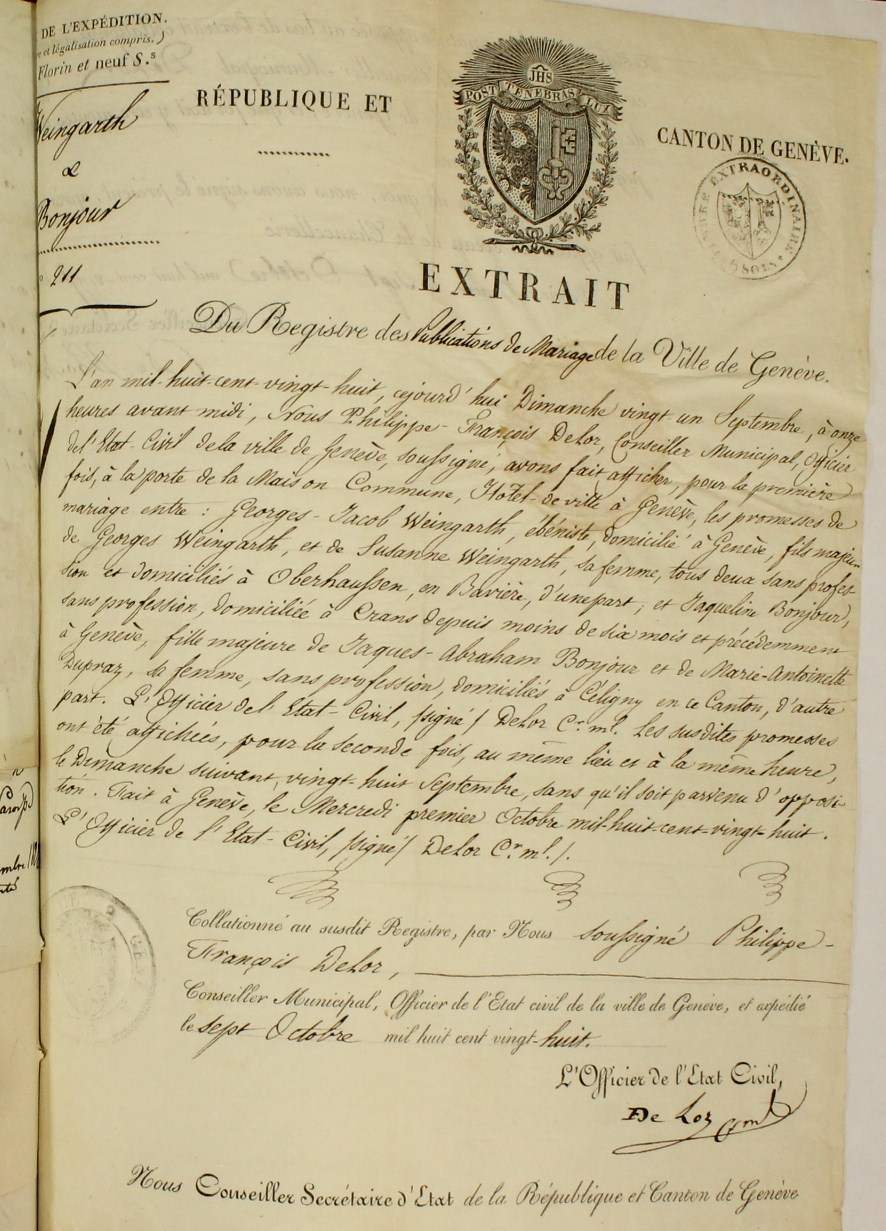 DE L'EXPÉDITION.
et légalisation compris.)
Florin et neuf S.s
Weingarth
&
Bonjour
211
RÉPUBLIQUE ET
JHS
POST TENEBRAS LUX
CANTON DE GENÈVE.
EXTRAORDINAIRE
SOLS
EXTRAIT
Du Registre des Publications de Mariage de la Ville de Genève.
L'an mil-huit-cent-vingt-huit, cejourd'hui Dimanche vingt un Septembre, à onze
heures avant midi, Nous Philippe-François DeLor, Conseiller Municipal, Officier
de l'Etat-Civil de la ville de Genève, soussigné, avons fait afficher, pour la première
fois, à la porte de la Maison Commune, Hotel-de-ville à Genève, les promesses de
mariage entre : Georges-Jacob Weingarth, ébéniste, domicilié à Genève, fils majeur
de Georges Weingarth, et de Susanne Weingarth, sa femme, tous deux sans profes-
sion et domiciliés à Oberhaussen, en Bavière, d'une part; et Jaqueline Bonjour,
sans profession, domiciliée à Crans depuis moins de six mois et précédemment
à Genève, fille majeure de Jaques-Abraham Bonjour et de Marie-Antoinette
Dupraz, sa femme, sans profession, domiciliés à Céligny en ce Canton, d'autre
part. L'Officier de l'Etat-Civil, /signé/ DeLor C.r m.l. Les susdites promesses
ont été affichées, pour la seconde fois, au même lieu et à la même heure,
le Dimanche suivant, vingt-huit Septembre, sans qu'il soit parvenu d'opposi-
tion. Fait à Genève, le Mercredi premier Octobre mil-huit-cent-vingt-huit.
L'Officier de l'Etat-Civil, /signé/ DeLor C.r m.l./.
Collationné au susdit Registre, par Nous soussigné Philippe-
François DeLor,
Conseiller Municipal, Officier de l'Etat civil de la ville de Genève, et expédié
le sept Octobre mil huit cent vingt-huit.
L'Officier de l'Etat Civil,
De Lor cml
Nous Conseiller Secrétaire d'Etat de la République et Canton de Genève